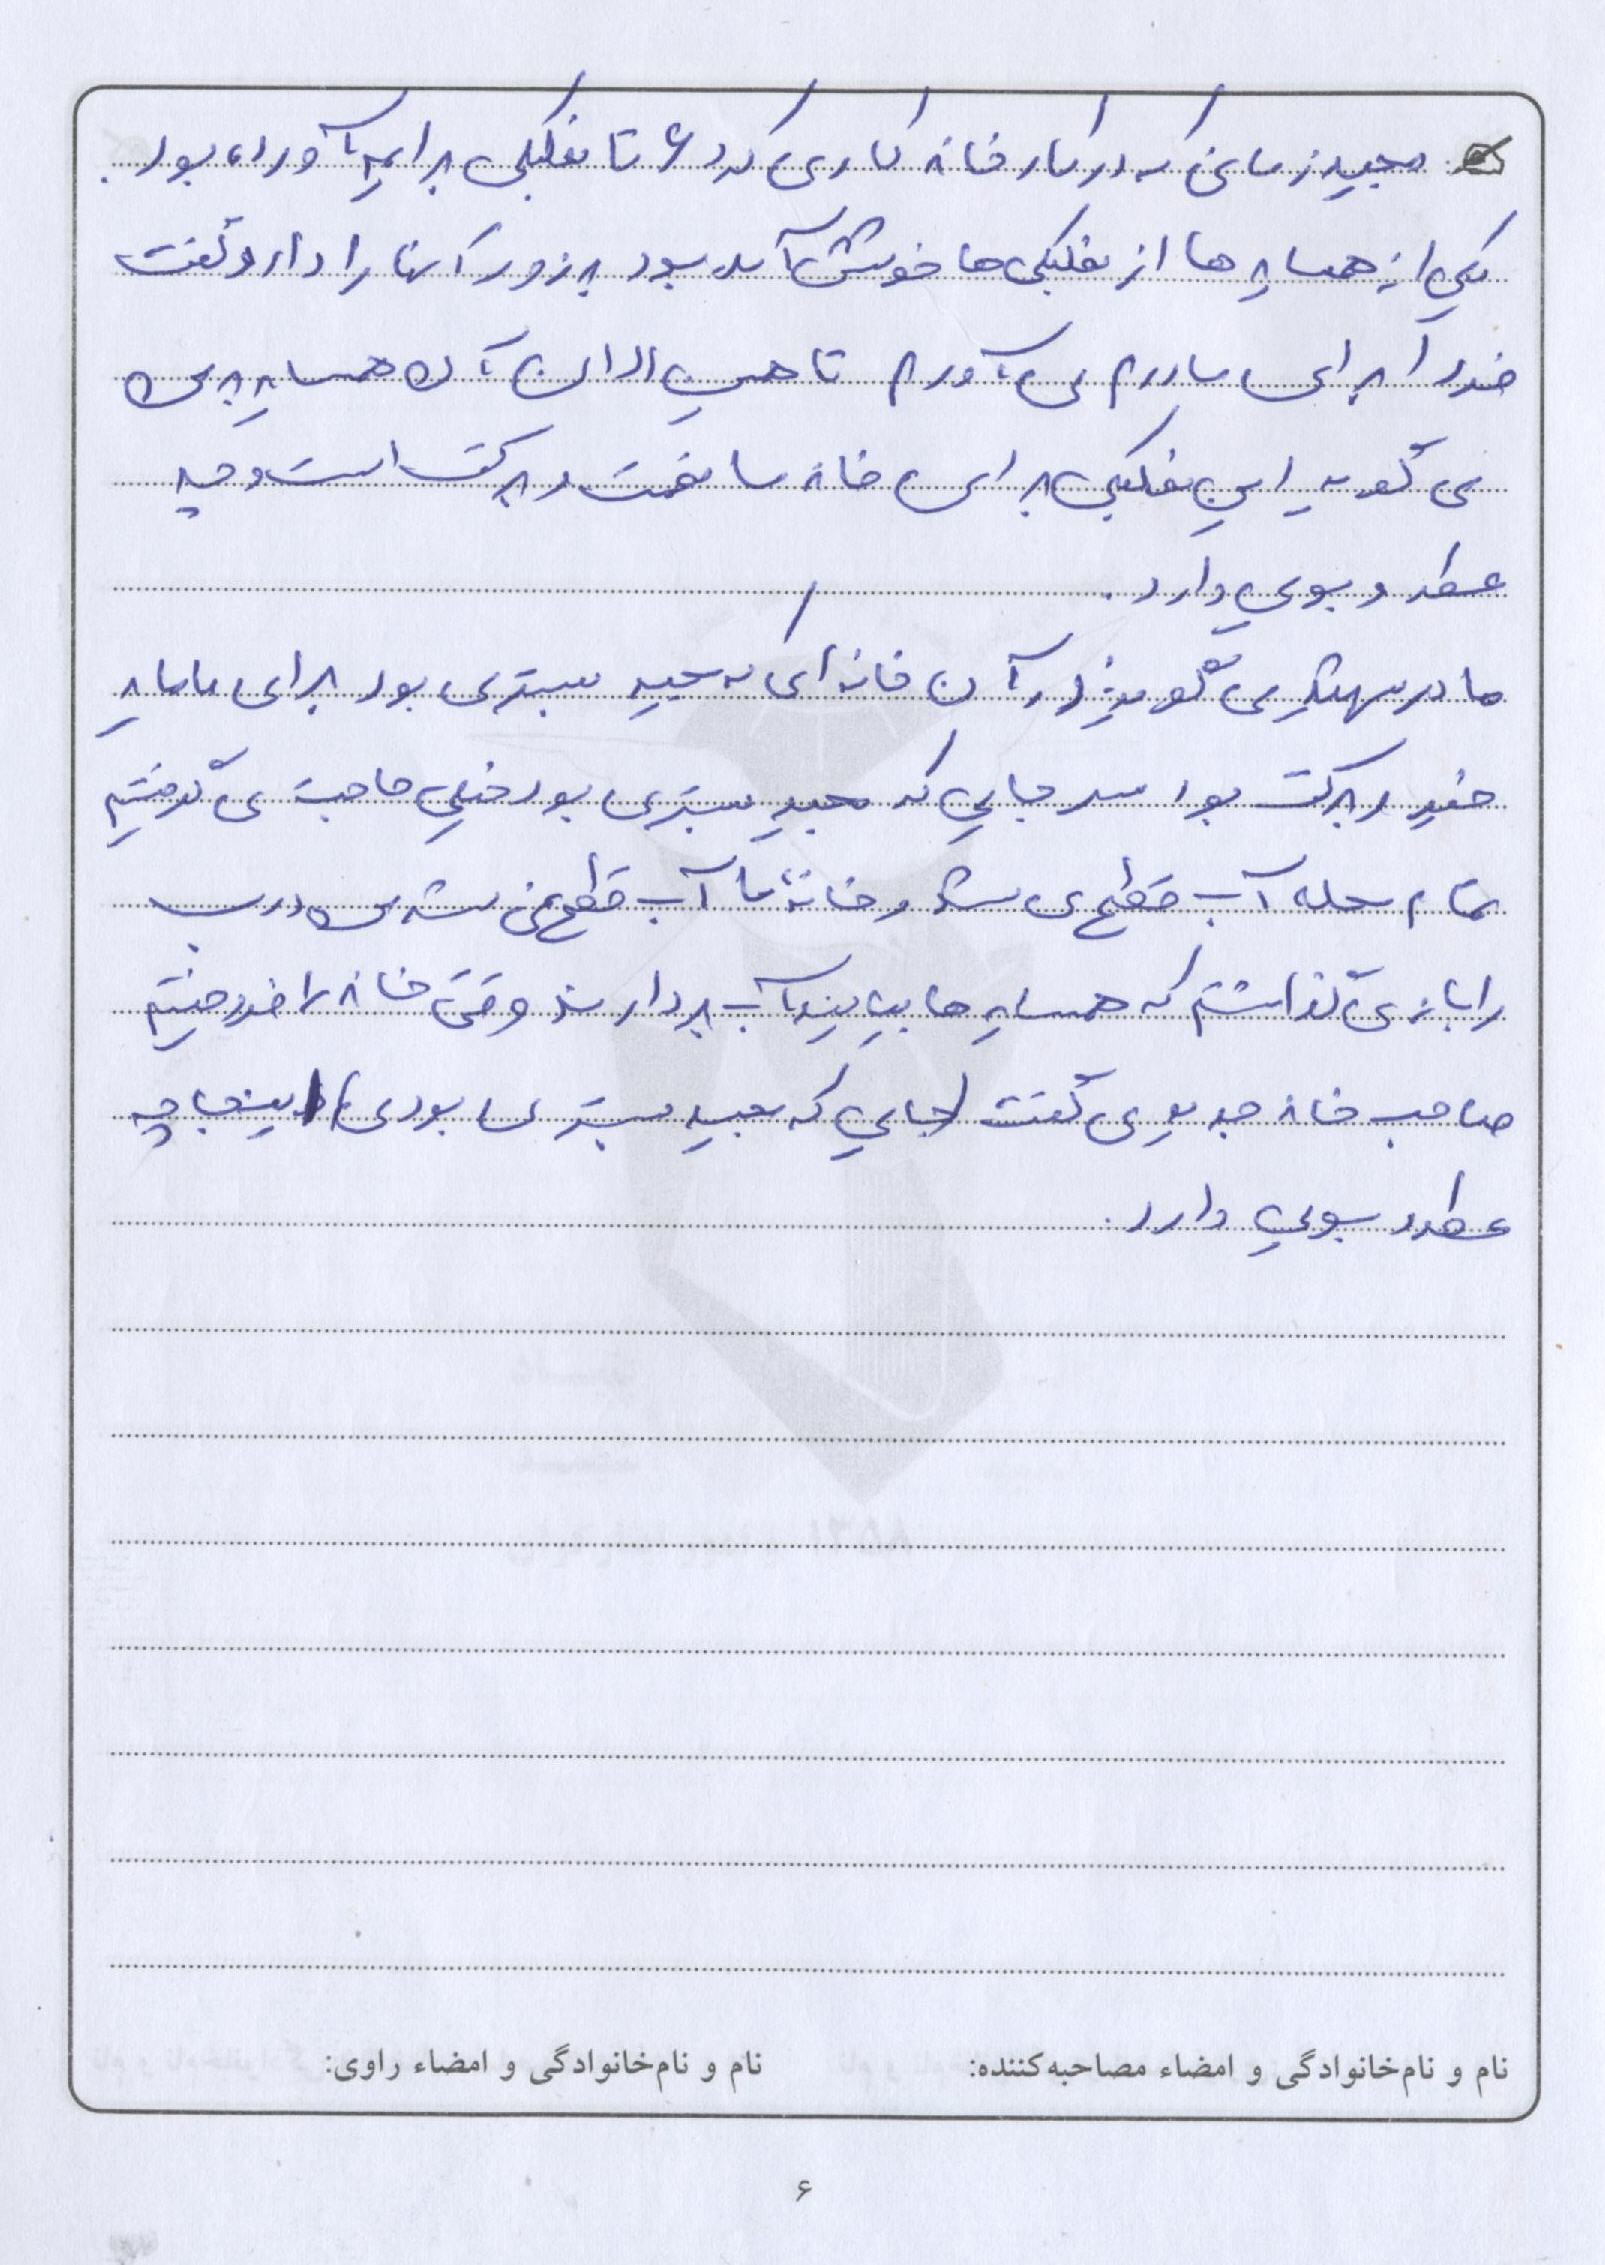 مجید زمانی که در کارخانه کار می کرد ۶ تا نعلبکی برایم آورده بود.
یکی از همسایه ها از نعلبکی ها خوشش آمده بود به زور آنها را داد و گفت
فردا برای مادرم می آورم تا همین الان آن همسایه به من
می گوید این نعلبکی برای خانه ما نعمت و برکت است و چه
عطر و بویی دارد.
مادر شهید می گوید در آن خانه ای که مجید بستری بود برای ما مایه
خیر و برکت بود سر جایی که مجید بستری بود خیلی حاجت می گرفتیم
تمام محله آب قطع می شد و خانه ما آب قطع نمی شد من درب
را باز می گذاشتم که همسایه ها بیایند آب بردارند وقتی خانه را فروختیم
صاحب خانه جدید می گفت (جایی که مجید بستری بود) اینجا چه
عطر و بویی دارد.
نام و نام‌خانوادگی و امضاء مصاحبه‌کننده: نام و نام‌خانوادگی و امضاء راوی:
۶